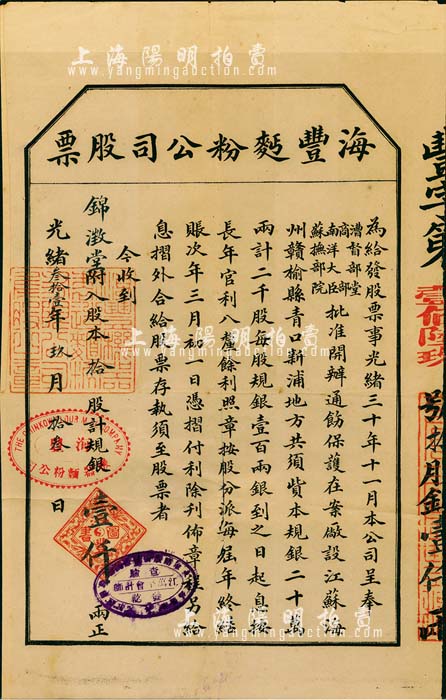 上海陽明拍賣
www.yangmingauction.com
海豐麪粉公司股票
為給發股票事光緒三十年十一月本公司呈奉
漕督部堂
商部
南洋大臣
蘇撫部院
批准開辦通飭保護在案儆設江蘇海
州贛榆縣青口新浦地方共須貲本規銀二十萬
兩計二千股每股規銀壹百兩銀到之日起息按
長年官利八釐餘利照章按股份派每屆年終結
賬次年三月初一日憑摺付利除刊佈章另給
息摺外合給股票存執須至股票者
今收到
錦澂堂附入股本拾股計規銀壹仟兩正
光緒叁拾壹年玖月拾叁日
豐字第壹佰陸玖號拾股銀壹仟兩
海豐
麵粉公司
上海陽明拍賣
www.yangmingauction.com